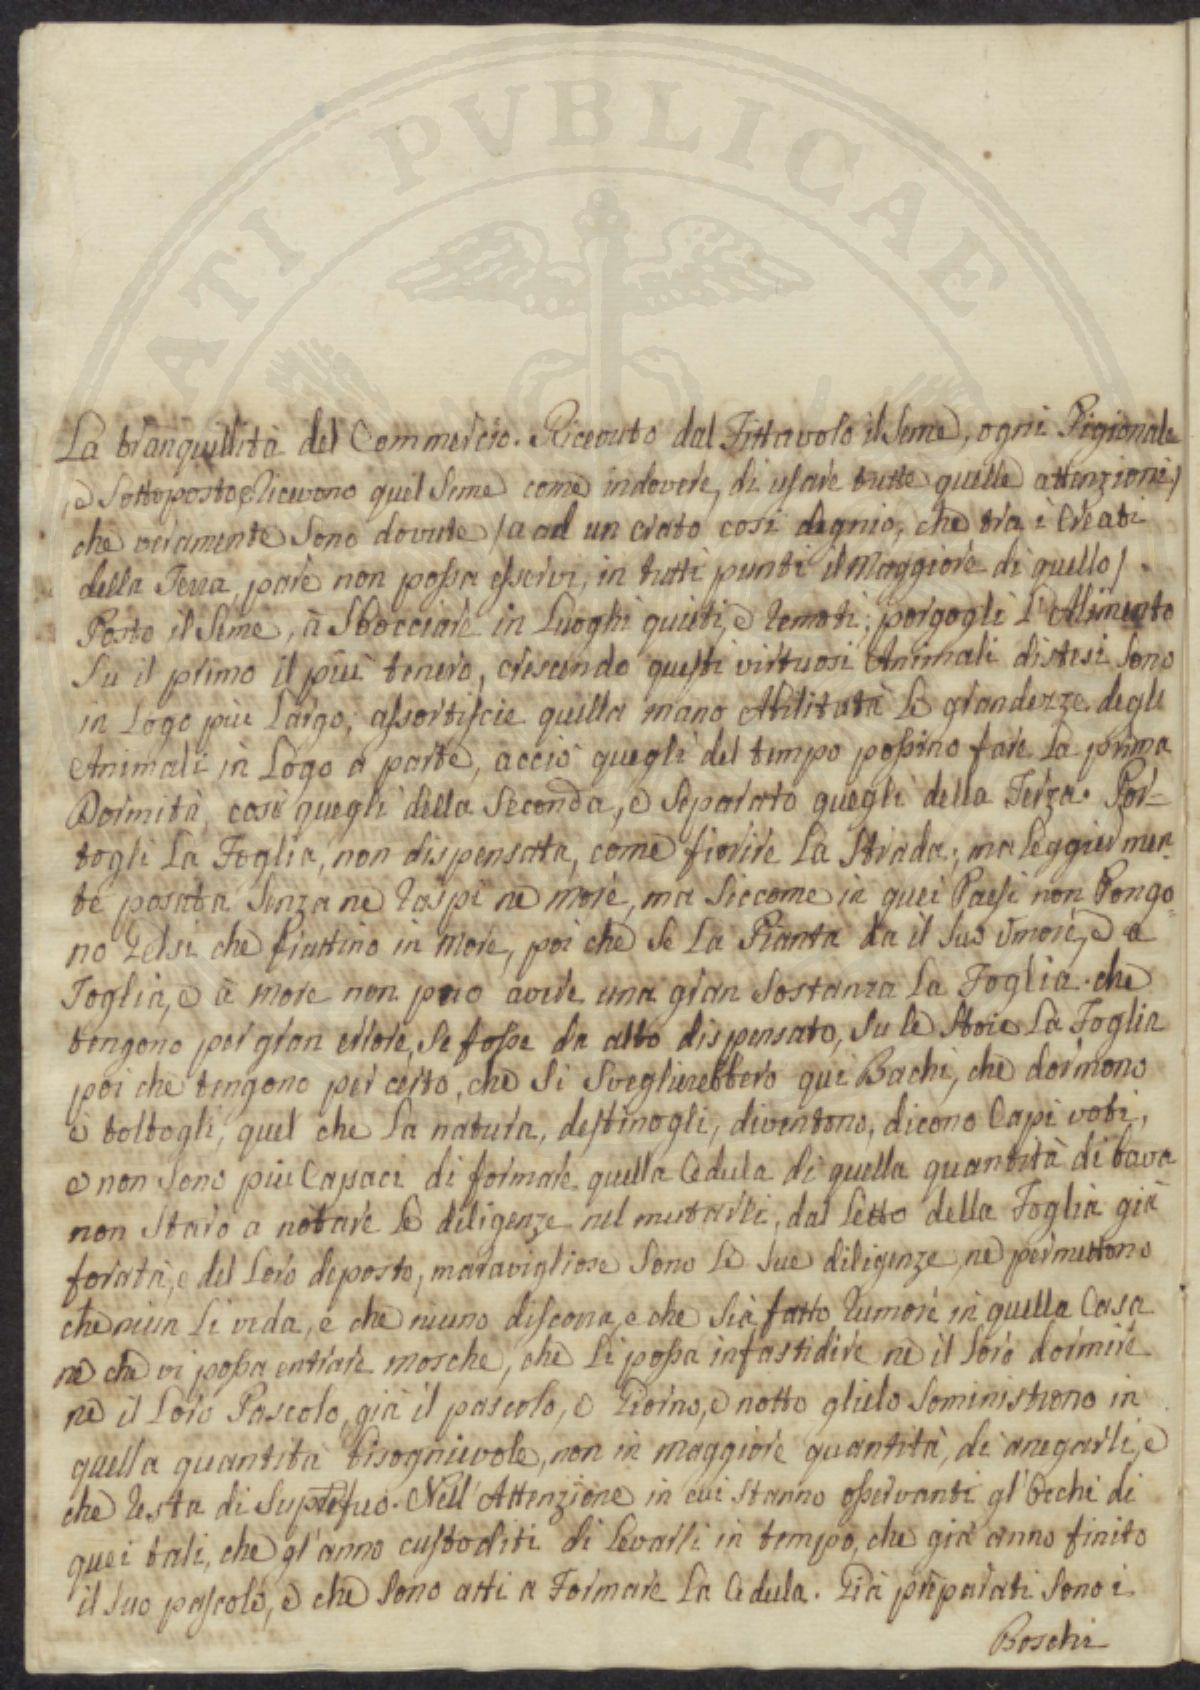 ATI PVBLICAE
La tranquillità del Commercio. Riceouto dal Fittavolo il Seme, ogni Pigionale
e Sottoposto, Ricevono quel Seme come indovere, di usare tutte quelle attenzioni,
che veramente Sono dovute /a ad un crato così degnio, che tra i Creati
della Terra, pare non possa esservi, in tutti punti il Maggiore di quello/.
Posto il Seme, à Sbocciare in Luoghi quieti, e remoti; porgogli l'Alimento
Su il primo il più tenero, crescendo questi virtuosi Animali distesi Sono
in Logo più Largo; assortiscie quella mano Abilitata Le grandezze degli
Animali in Logo a parte, acciò quegli del tempo possino fare La prima
Dormità, così quegli della Seconda, e Separato quegli della Terza. Por=
togli La Foglia, non dispensata, come fiorire La Strada; ma leggiermen=
te posata Senza ne raspi ne more, ma Siccome in quei Paesi non Pongo=
no Gelsi che fruttino in More, poi che Se La Pianta da il Suo Umore, e a
Foglia, e à more non può avere una gran Sostanza La Foglia. che
tengono per gran errore, Se fosse da alto dispensato, Su le Stoie La Foglia
poi che tengono per certo, che Si Sveglierebbero quei Bachi, che dormono
e toltogli, quel che La natura, destinogli, diventono, dicono Capi voti,
e non Sono più Capaci di formare quella Cedula di quella quantità di bava
non Starò a notare Le diligenze nel mutarli, dal Letto della Foglia già
forata, e del Loro deposto, maravigliose Sono Le Sue diligenze, ne permettono
che niun Li veda, e che niuno discora, e che Sia fatto rumore in quella Casa
ne che vi possa entrare mosche, che Li possa infastidire ne il Loro dormire
ne il Loro Pascolo, già il pascolo, e Giorno, e notto glielo Soministrono in
quella quantità bisognievole, non in maggiore quantità, di anegarli, e
che resta di Suprefuo. Nell'Attenzione in cui Stanno osservanti gl'Occhi di
quei tali, che gl'anno custoditi di Levarli in tempo, che già anno finito
il Suo pascolo, e che Sono atti a Formare La Cedula. Già preparati Sono i
Boschi